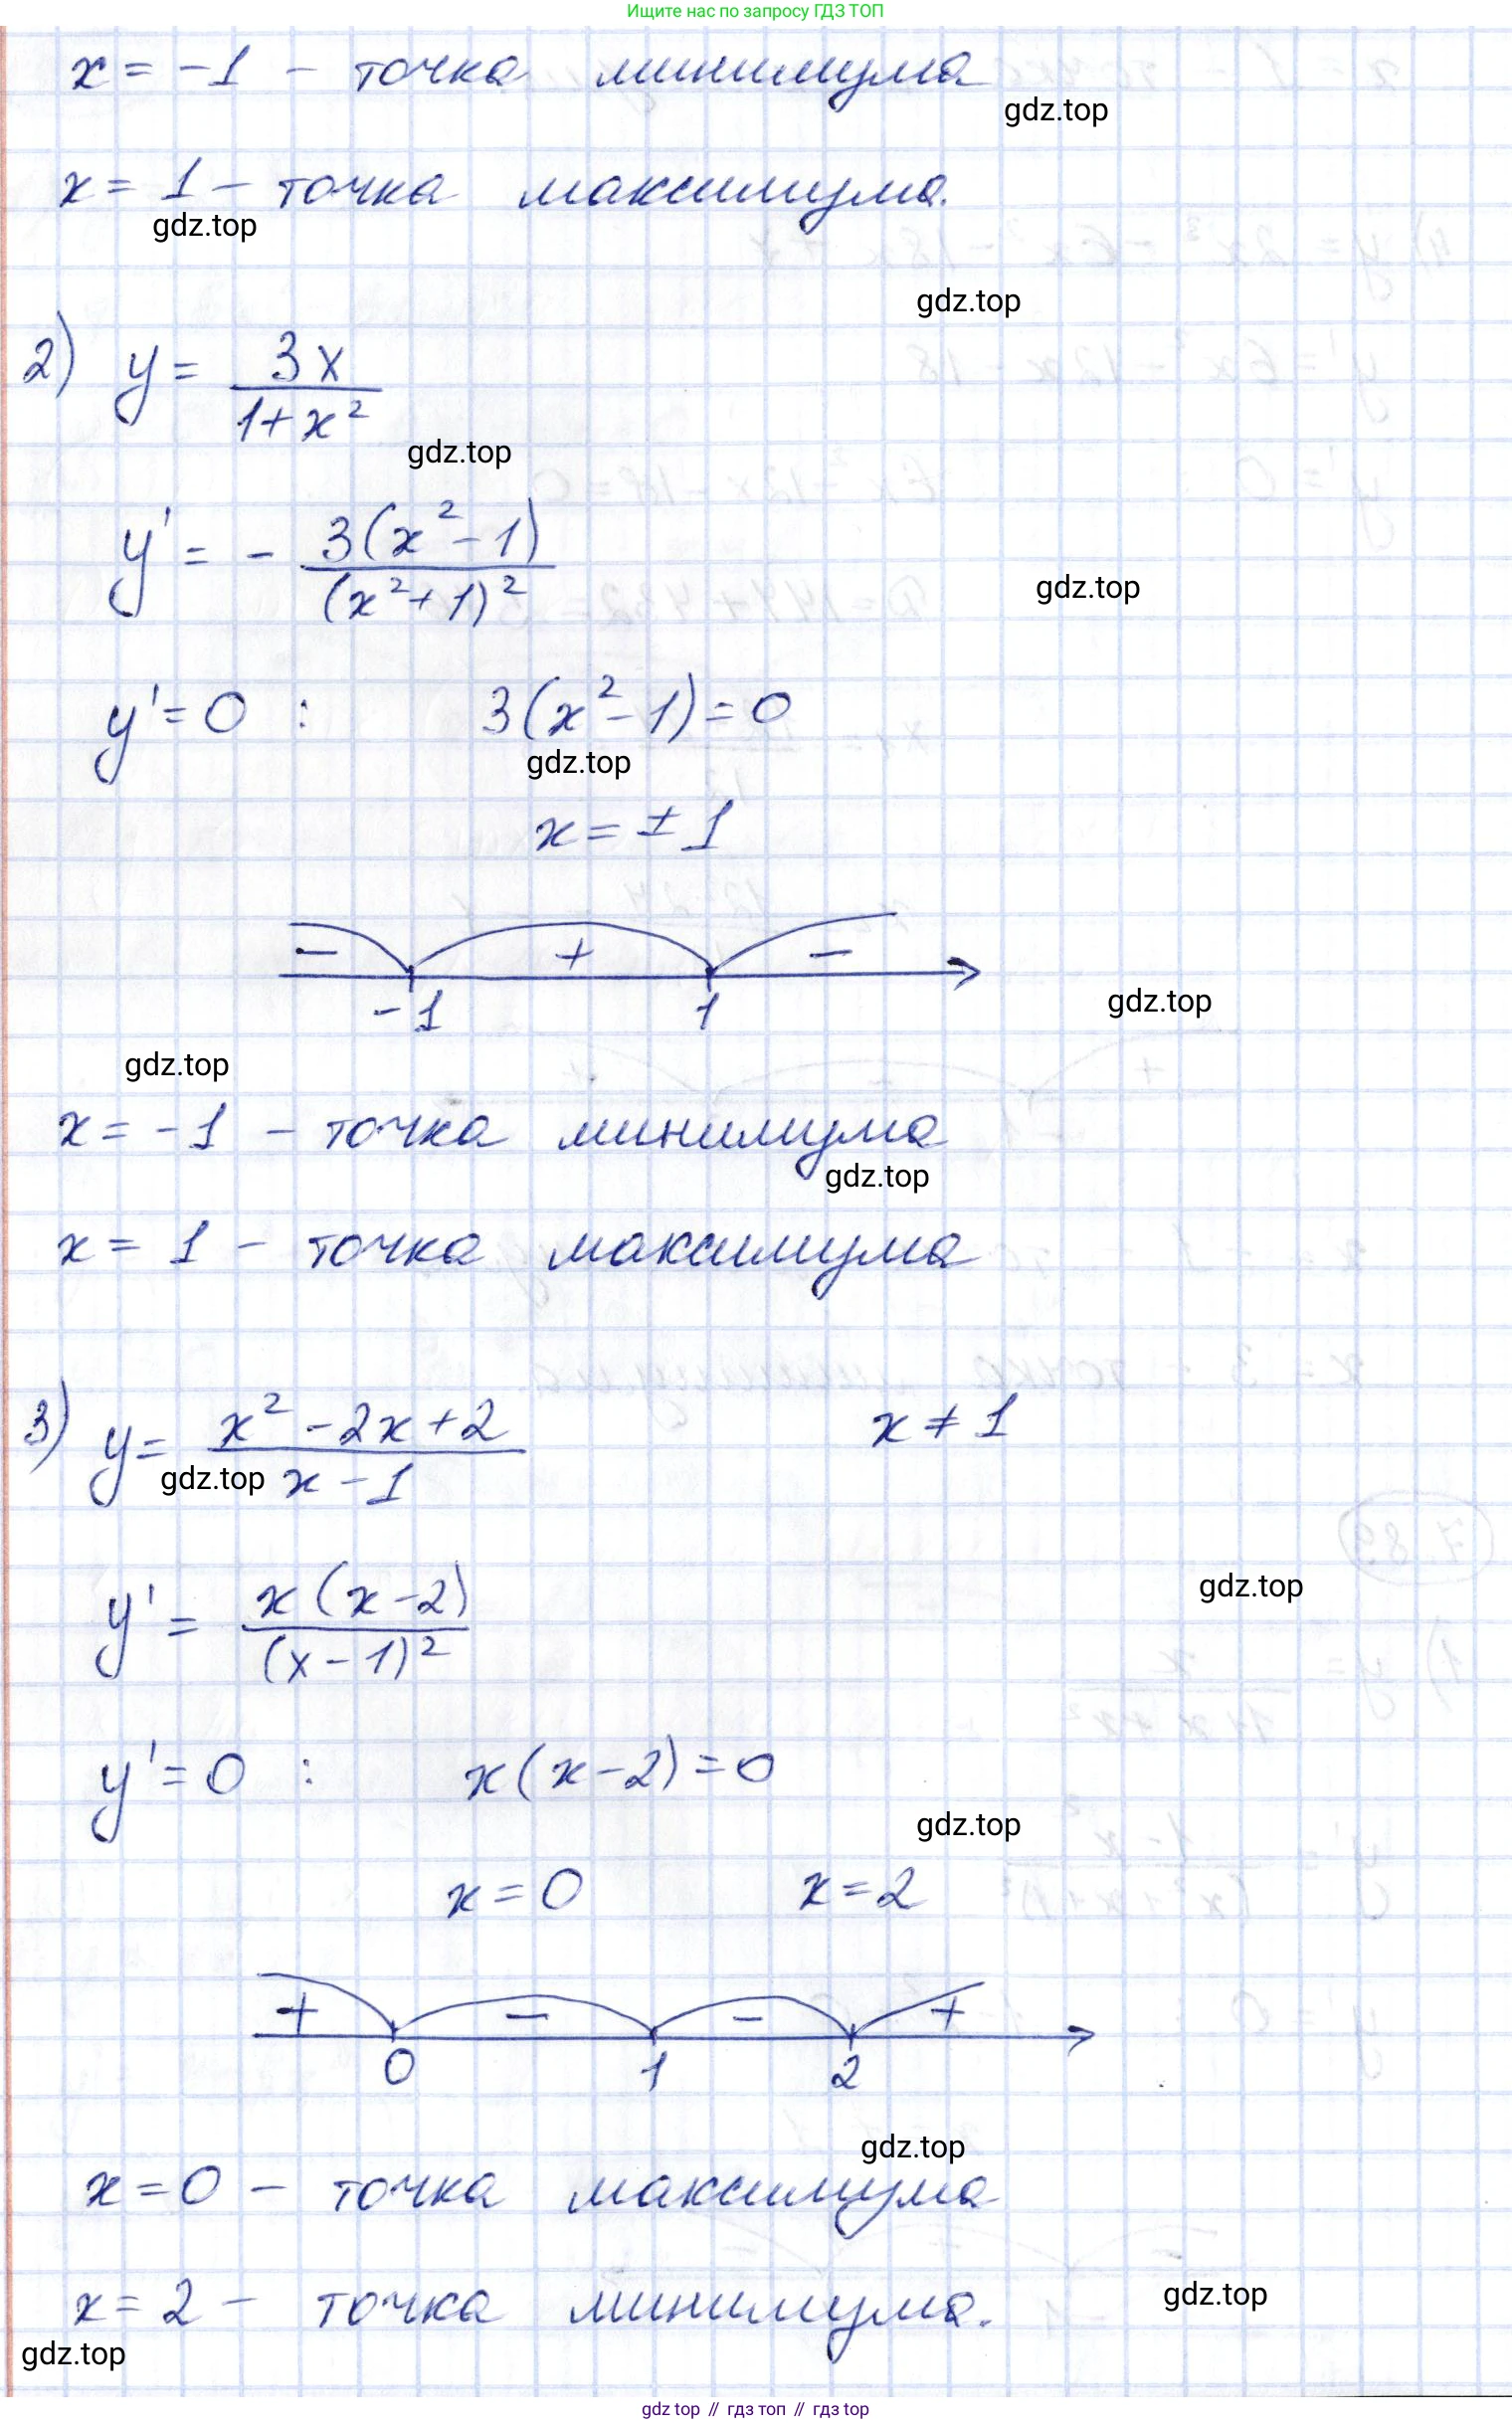 Ищите нас по запросу ГДЗ ТОП
x = -1 - точка минимума
gdz.top
x = 1 - точка максимума.
gdz.top
gdz.top
2) y = 3x / (1+x²)
gdz.top
y' = - 3(x²-1) / (x²+1)²
gdz.top
y' = 0 : 3(x²-1)=0
gdz.top
x = ± 1
- + -
-1 1
gdz.top
gdz.top
x = -1 - точка минимума
gdz.top
x = 1 - точка максимума
3) y = (x² - 2x + 2) / (x - 1) x ≠ 1
gdz.top
y' = x(x-2) / (x-1)²
gdz.top
y' = 0 : x(x-2)=0
gdz.top
x = 0 x = 2
+ - - +
0 1 2
gdz.top
x = 0 - точка максимума
x = 2 - точка минимума.
gdz.top
gdz.top
gdz top // гдз топ // гдз top